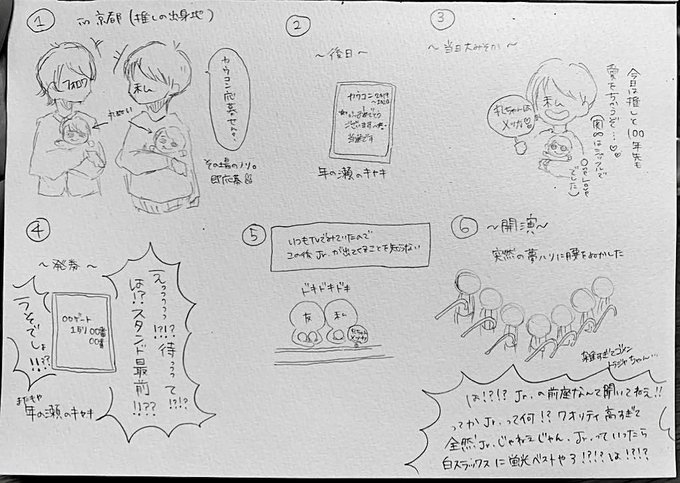 ① in 京都(推しの出身地)
フォロワ
私
ぬい
カウコン応募のせん。
その場のノリ。
即応募
②
〜後日〜
カウコン2019
〜2020
当選です
年の瀬のキセキ
③
〜当日大みそか〜
今日は推しと100年先も
愛をちかうぞ…♡♡
(関∞はシングルで
One Love
でした)
私ちゃんは
メリが♡
④
〜発券〜
〇〇ゲート
1列〇〇番
〇〇番
うそでしょ!!??
えっっっっ!?!?
待ってって!?!?
は!?スタンド最前!!??
またもや
年の瀬のキセキ
⑤
いつもTVでみていたので
この後Jr.が出てくることを知らない
ドキドキドキ
友
私
⑥ 〜開演〜
突然の夢ハリに腰をぬかした
雑すぎてゴメン
トラジャちゃん…
は!?!? Jr.の前座なんて聞いてねえ!!
ってかJr.って何!? クオリティ高すぎて
全然Jr.じゃねえじゃん. Jr.っていったら
白スラックスに蛍光ベストやろ!?!? は!?!?